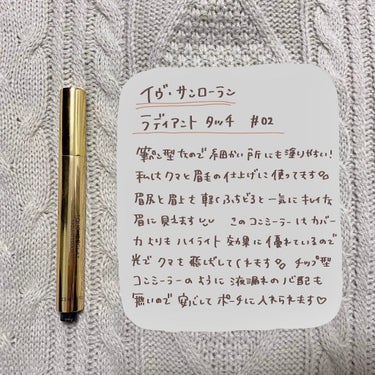 イヴ・サンローラン
ラディアント タッチ #02
筆ペン型なので細かい所にも塗りやすい!
私はクマと眉毛の仕上げに使ってます
眉尻と眉上を軽くふちどると一気にキレイな
眉に見えます このコンシーラーはカバー
力よりもハイライト効果に優れているので
光でクマを飛ばしてくれます チップ型
コンシーラーのように液漏れの心配も
無いので安心してポーチに入れられます♡